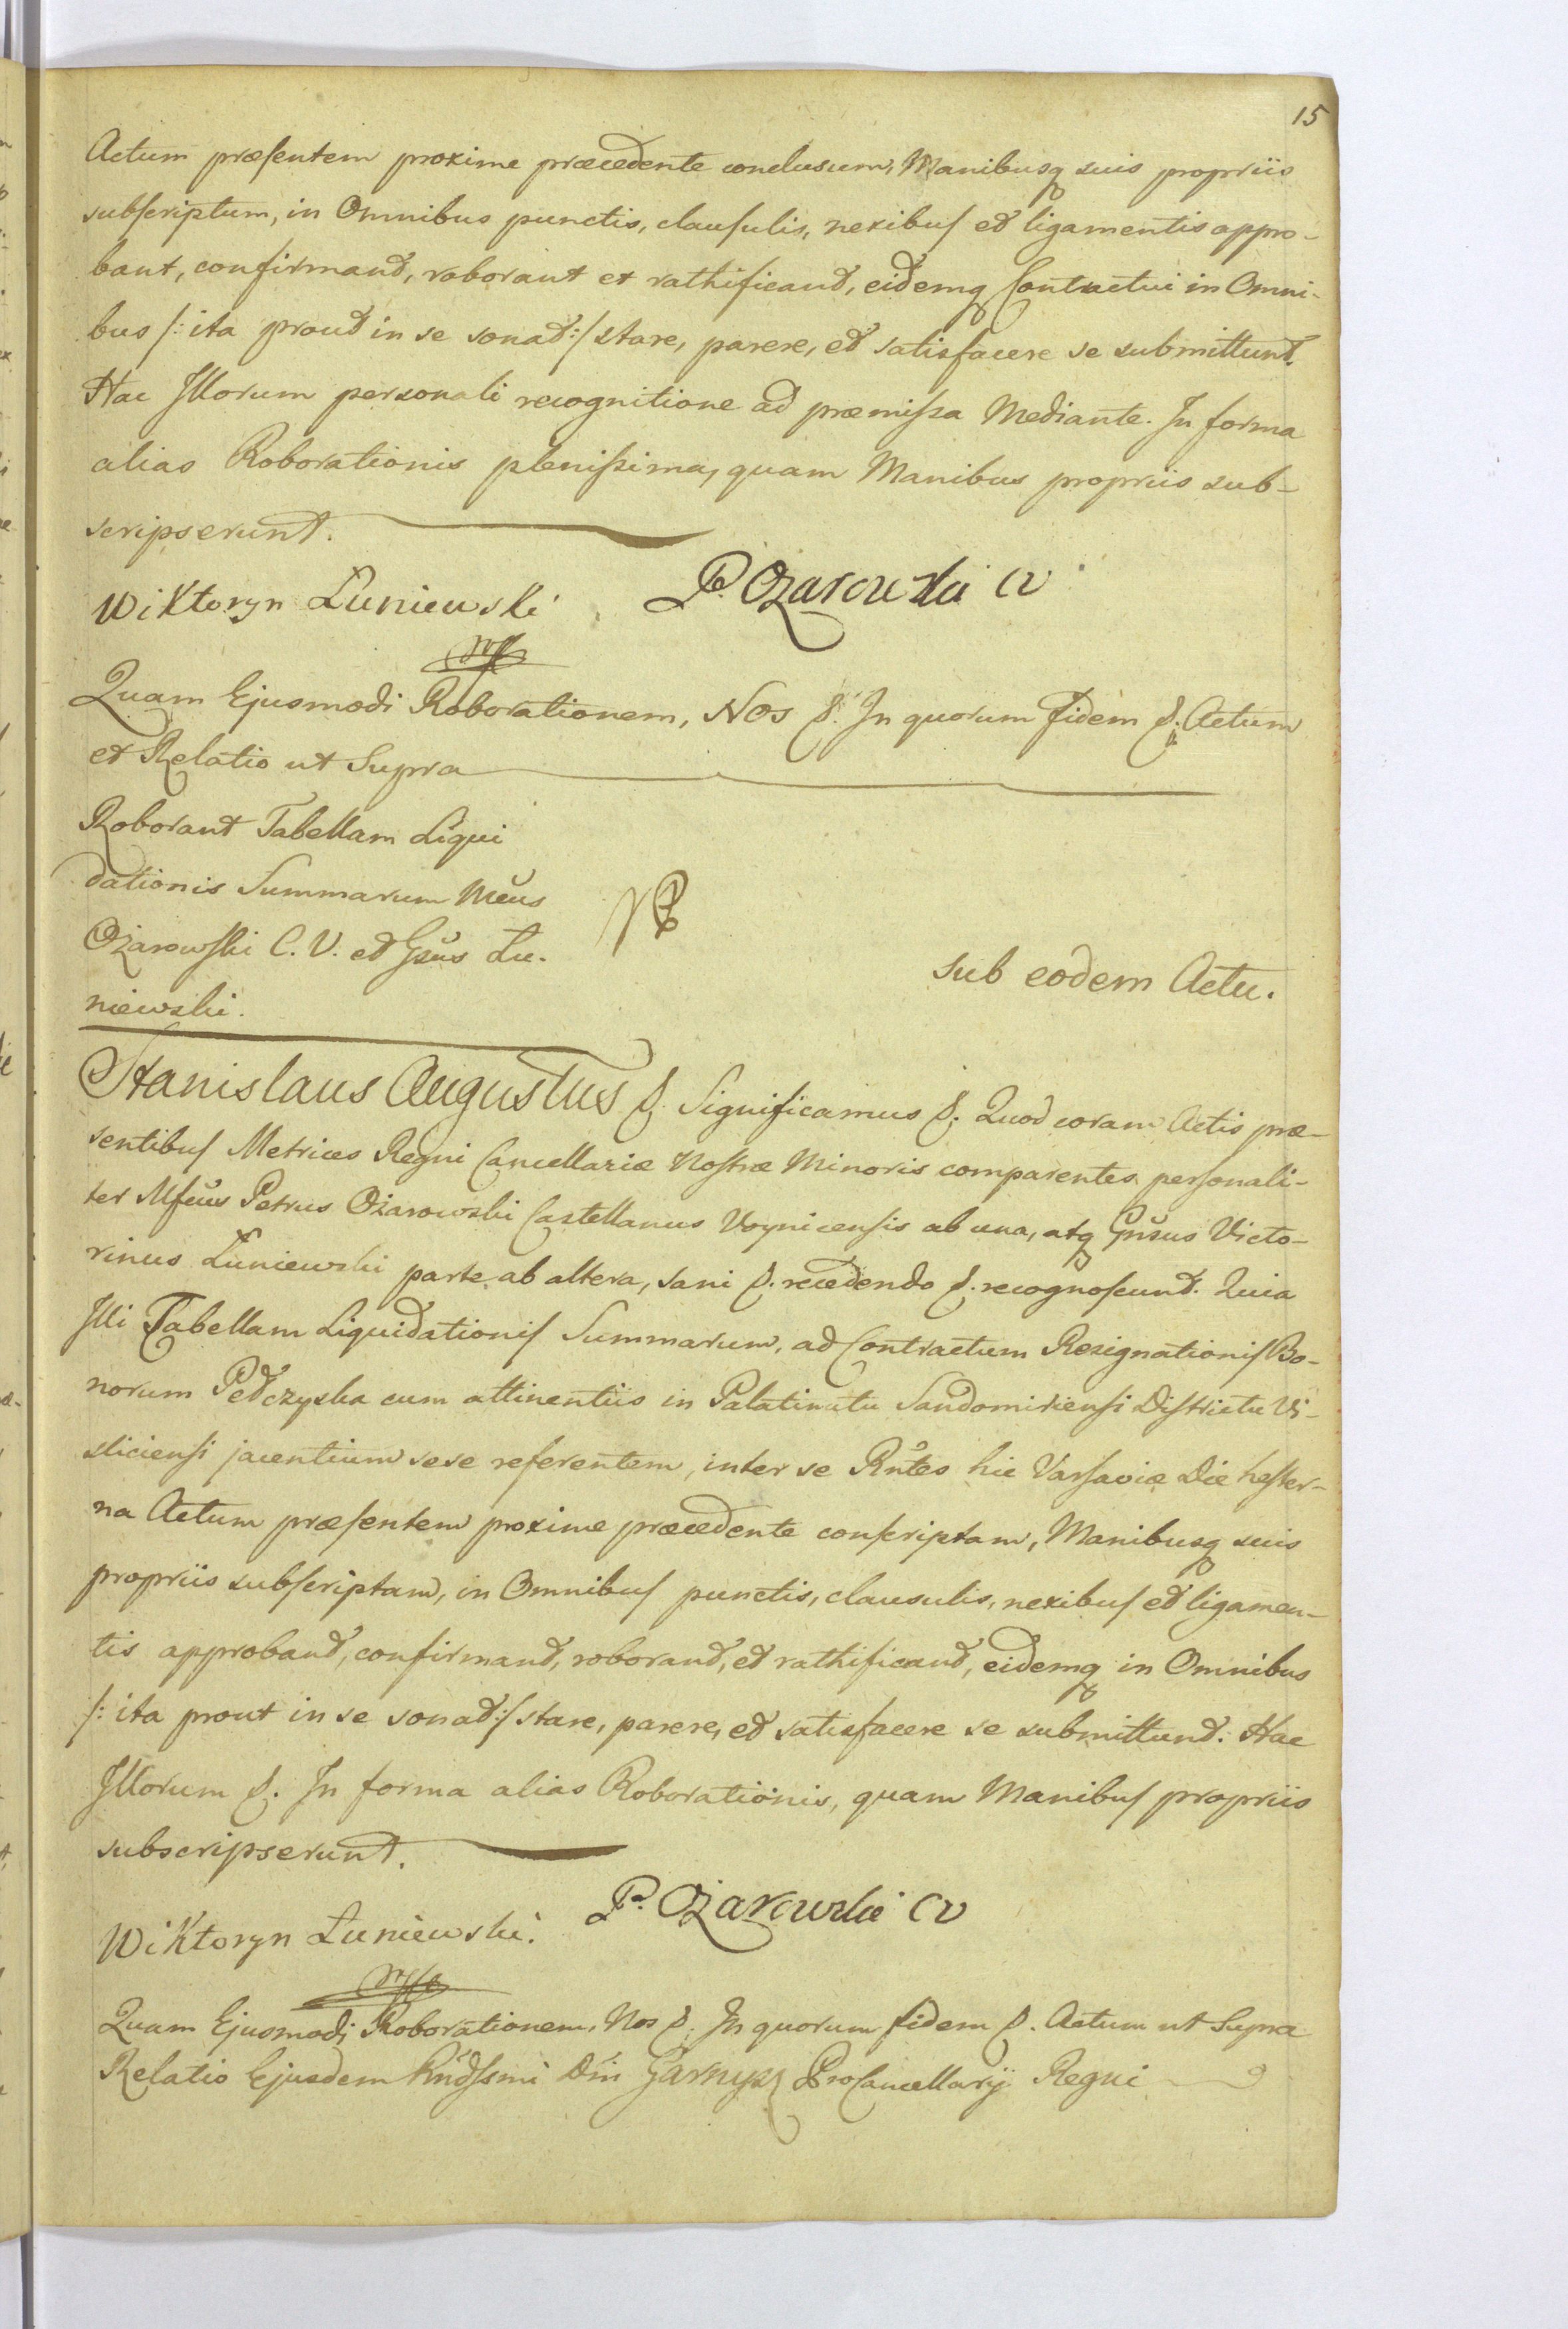 15
Actum præsentem proxime præcedente conclusum, Manibusq suis propriis
subscriptum, in Omnibus punctis, clausulis, nexibus et ligamentis appro-
bant, confirmant, roborant et rathificant, eidemq Contractui in Omni-
bus /: ita prout in se sonat :/ stare, parere, et satisfacere se submittunt.
Hac Illorum personali recognitione ad præmissa Mediante. In forma
alias Roborationis plenissima, quam Manibus propriis sub-
scripserunt.
Wiktoryn Łuniewski P. Ożarowski CV
mp
Quam Ejusmodi Roborationem, Nos &. In quorum fidem &. Actum
et Relatio ut Supra
Roborant Tabellam Liqui
dationis Summarum Mcus
Ożarowski C. V. et Gsus Łu-
niewski.
sub eodem Actu.
Stanislaus Augustus &. Significamus &. Quod coram Actis præ-
sentibus Metrices Regni Cancellariæ Nostræ Minoris comparentes personali-
ter Mfcus Petrus Ożarowski Castellanus Voynicensis ab una, atq Gnsus Victo-
rinus Łuniewski parte ab altera, sani &. recedendo &. recognoscunt. Quia
Illi Tabellam Liquidationis Summarum, ad Contractum Resignationis Bo-
norum Pełczyska cum attinentiis in Palatinatu Sandomiriensi Districtu Vi-
sliciensi jacentium sese referentem, inter se Rntes hic Varsaviæ Die hester-
na Actum præsentem proxime præcedente conscriptam, Manibusq suis
propriis subscriptam, in Omnibus punctis, clausulis, nexibus et ligamen-
tis approbant, confirmant, roborant, et rathificant, eidemq in Omnibus
/: ita prout in se sonat :/ stare, parere, et satisfacere se submittunt. Hac
Illorum &. In forma alias Roborationis, quam Manibus propriis
subscripserunt.
Wiktoryn Łuniewski. P. Ożarowski CV
mp
Quam Ejusmodi Roborationem, Nos &. In quorum fidem &. Actum ut Supra
Relatio Ejusdem Rndssmi Dni Garnysz ProCancellarij Regni